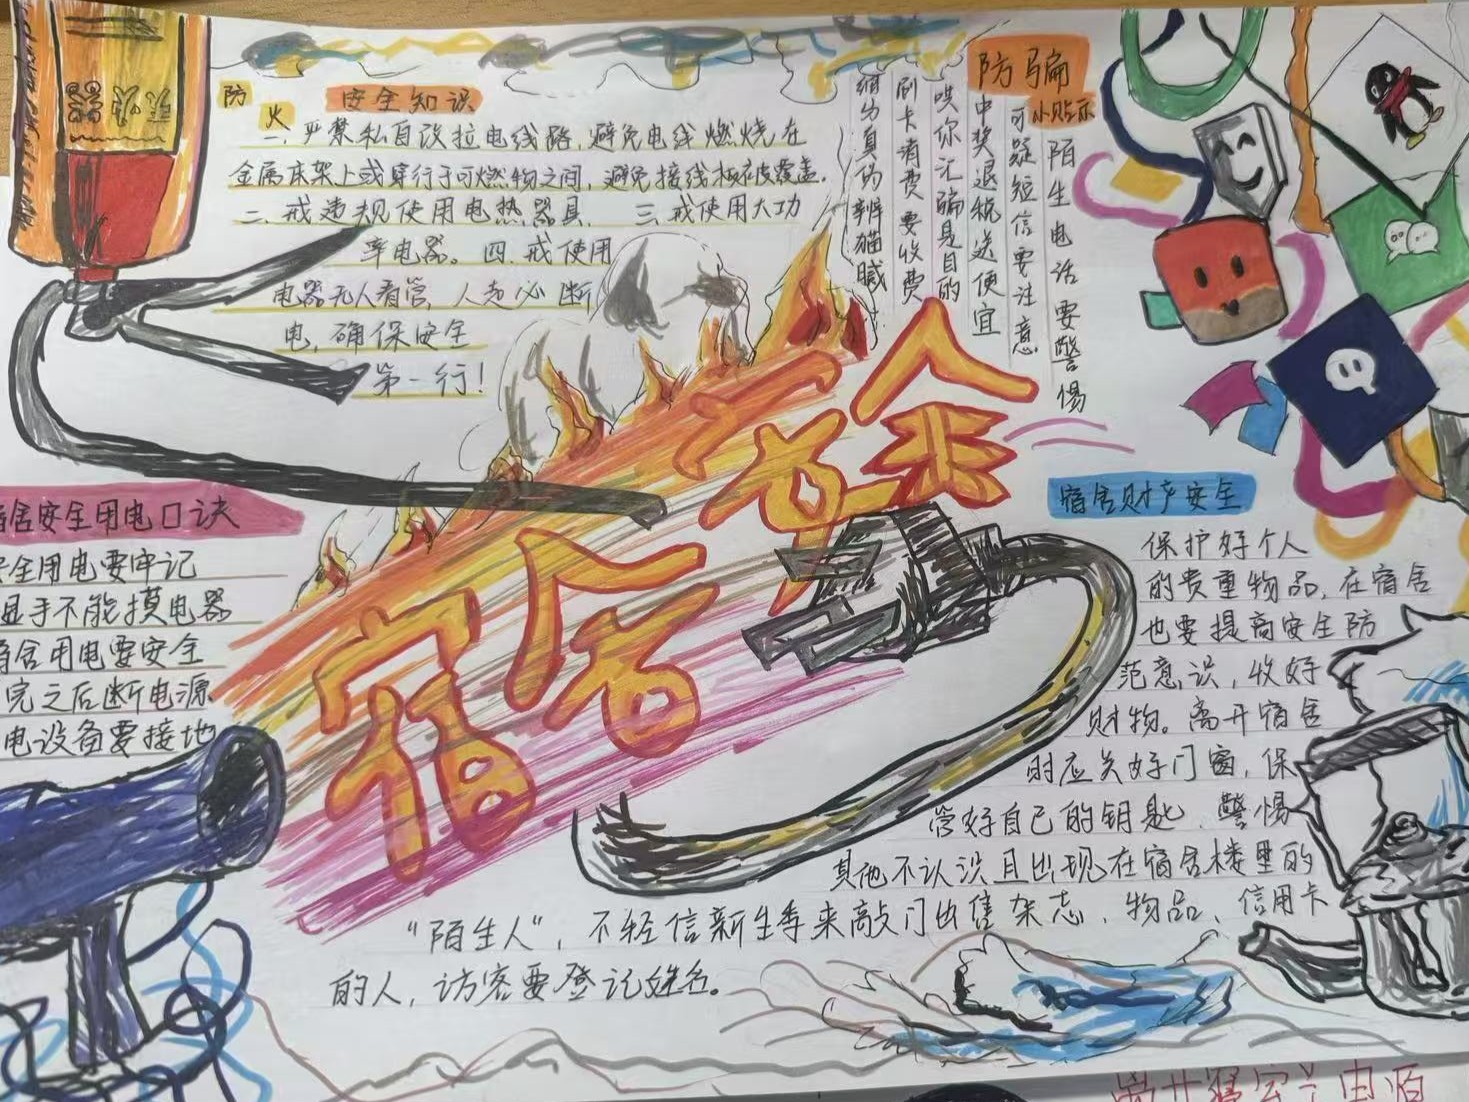 防火
安全知识
一.严禁私自改拉电线路,避免电线燃烧,在
金属床架上或穿行于可燃物之间,避免接线板被覆盖.
二.戒违规使用电热器具.三.戒使用大功
率电器。四.戒使用
电器无人看管,人走必断
电,确保安全
第一行!
防骗
小贴示
陌生电话要警惕
可疑短信要注意
中奖退税送便宜
哄你汇骗是目的
刷卡消费要收费
宿舍安全
舍安全用电口诀
安全用电要牢记
显手不能摸电器
宿舍用电要安全
完之后断电源
电设备要接地
宿舍财产安全
保护好个人
的贵重物品,在宿舍
也要提高安全防
范意识,收好
财物。离开宿舍
时应关好门窗,保
管好自己的钥匙、警惕
其他不认识且出现在宿舍楼里的
“陌生人”,不轻信新生季来敲门出售杂志、物品、信用卡
的人,访客要登记姓名。